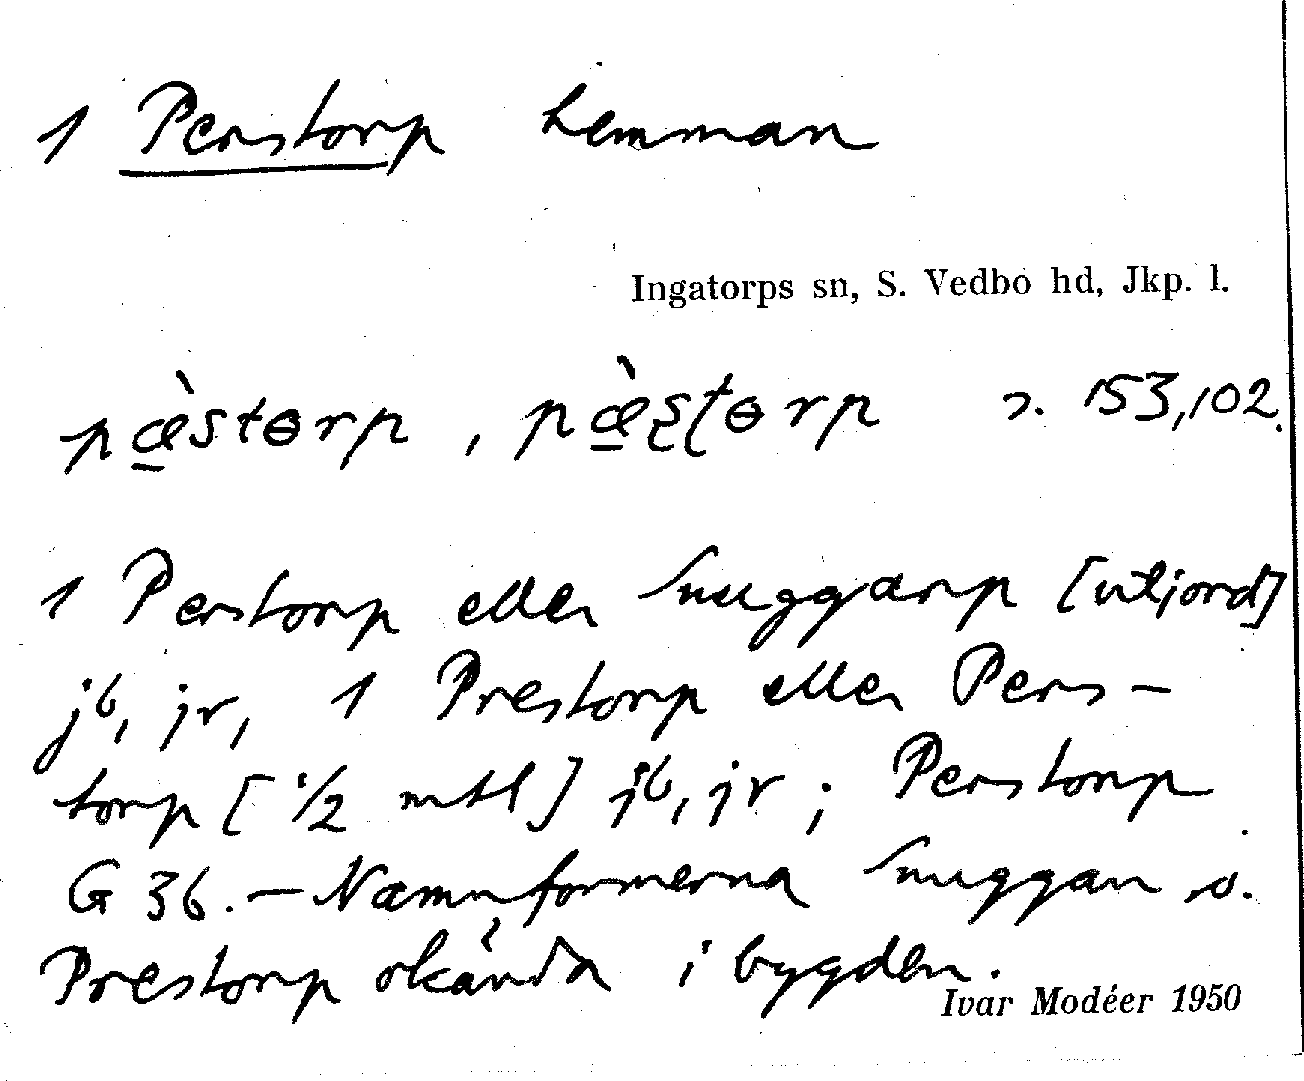 1 Perstorp hemman
Ingatorps sn, S. Vedbo hd, Jkp. l.
pæ̠̀stɵrp, pæ̠̀ʂʈɵrp s. 153, 102.
1 Perstorp eller Snuggarp [utjord]
jb, jr, 1 Prestorp eller Pers-
torp [1/2 mtl] jb, jr; Perstorp
G 36. – Namnformerna Snuggan o.
Prestorp okända i bygden.
Ivar Modéer 1950